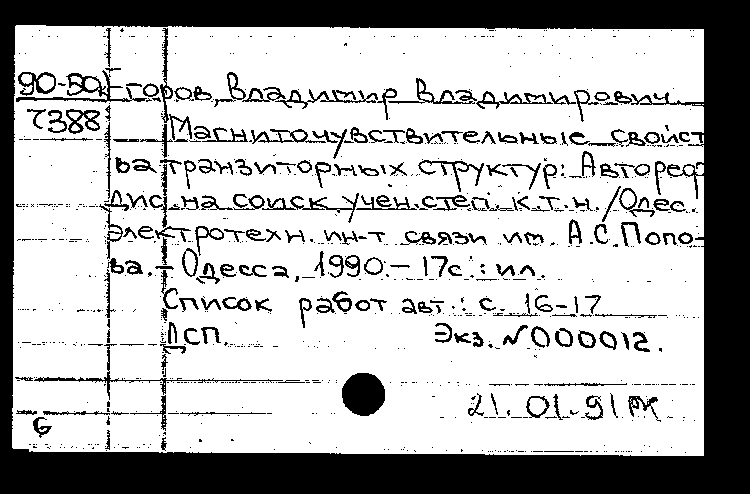 90-50к Егоров, Владимир Владимирович.
7388 Магниточувствительные свойст
ва транзиторных структур: Автореф
Дис. на соиск. учен. степ. к.т.н. / Одес.
электротехн. ин-т связи им. А.С. Попо-
ва. - Одесса, 1990. - 17с.: ил.
Список работ авт.: с. 16-17
ДСП. Экз. №000012.
21.01.91
6